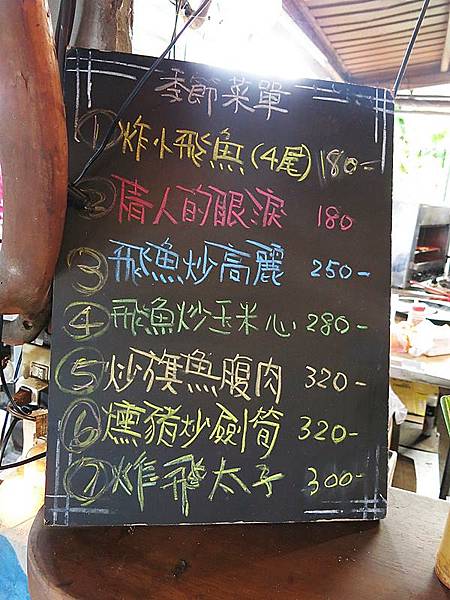 季節菜單
① 炸小飛魚(4尾) 180-
② 情人的眼淚 180
③ 飛漁炒高麗 250-
④ 飛漁炒玉米心 280-
⑤ 炒旗魚腹肉 320-
⑥ 燻豬炒劍筍 320-
⑦ 炸飛太子 300-